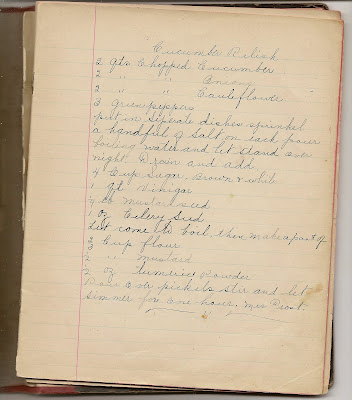 Cucumber Relish
2 qts Chopped Cucumber
2 " " Onions
2 " " Cauleflower
3 Green peppers
put in Seperate dishes sprinkel
a handful of Salt on each pouer
boiling water and let stand over
night. Drain and add
4 Cup Sugar. Brown & white
1 qt Vinigar
¼ lb Mustard seed
1 oz Celery Seed
Let come to boil then make a past of
Cup flour
" mustard
oz Tumeric Powder
Pour over pickels stir and let
simmer for one hour. Mrs